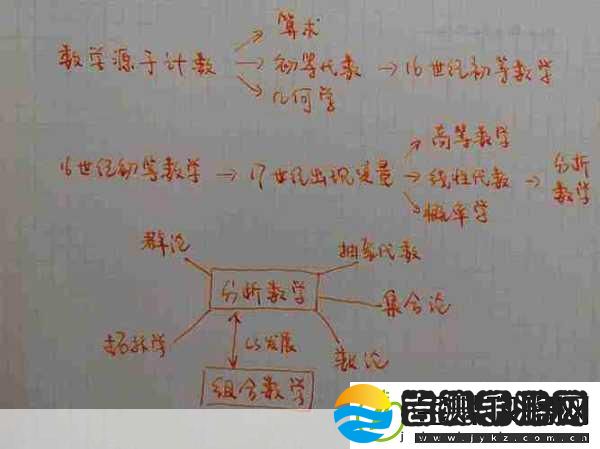 算术
数学源于计数 → 初等代数 → 16世纪初等数学
几何学
高等数学
16世纪初等数学 → 17世纪出现变量 → 线性代数 → 分析数学
概率学
群论
抽象代数
分析数学
集合论
拓扑学
CS发展
数论
组合数学
www.jykz.com.cn